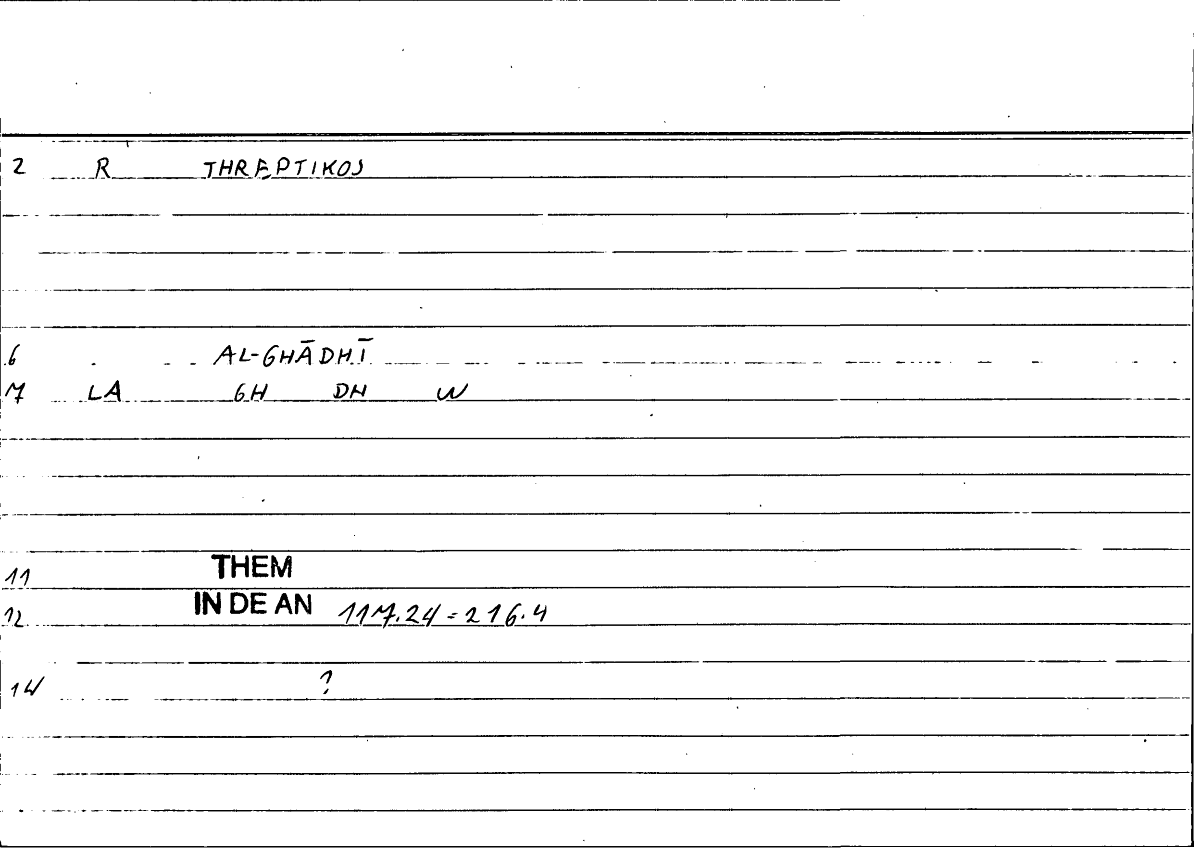 2 R THREPTIKOS
6 AL-GHĀDHĪ
7 LA GH DH W
11 THEM
12 IN DE AN 117.24 = 216.4
14 ?